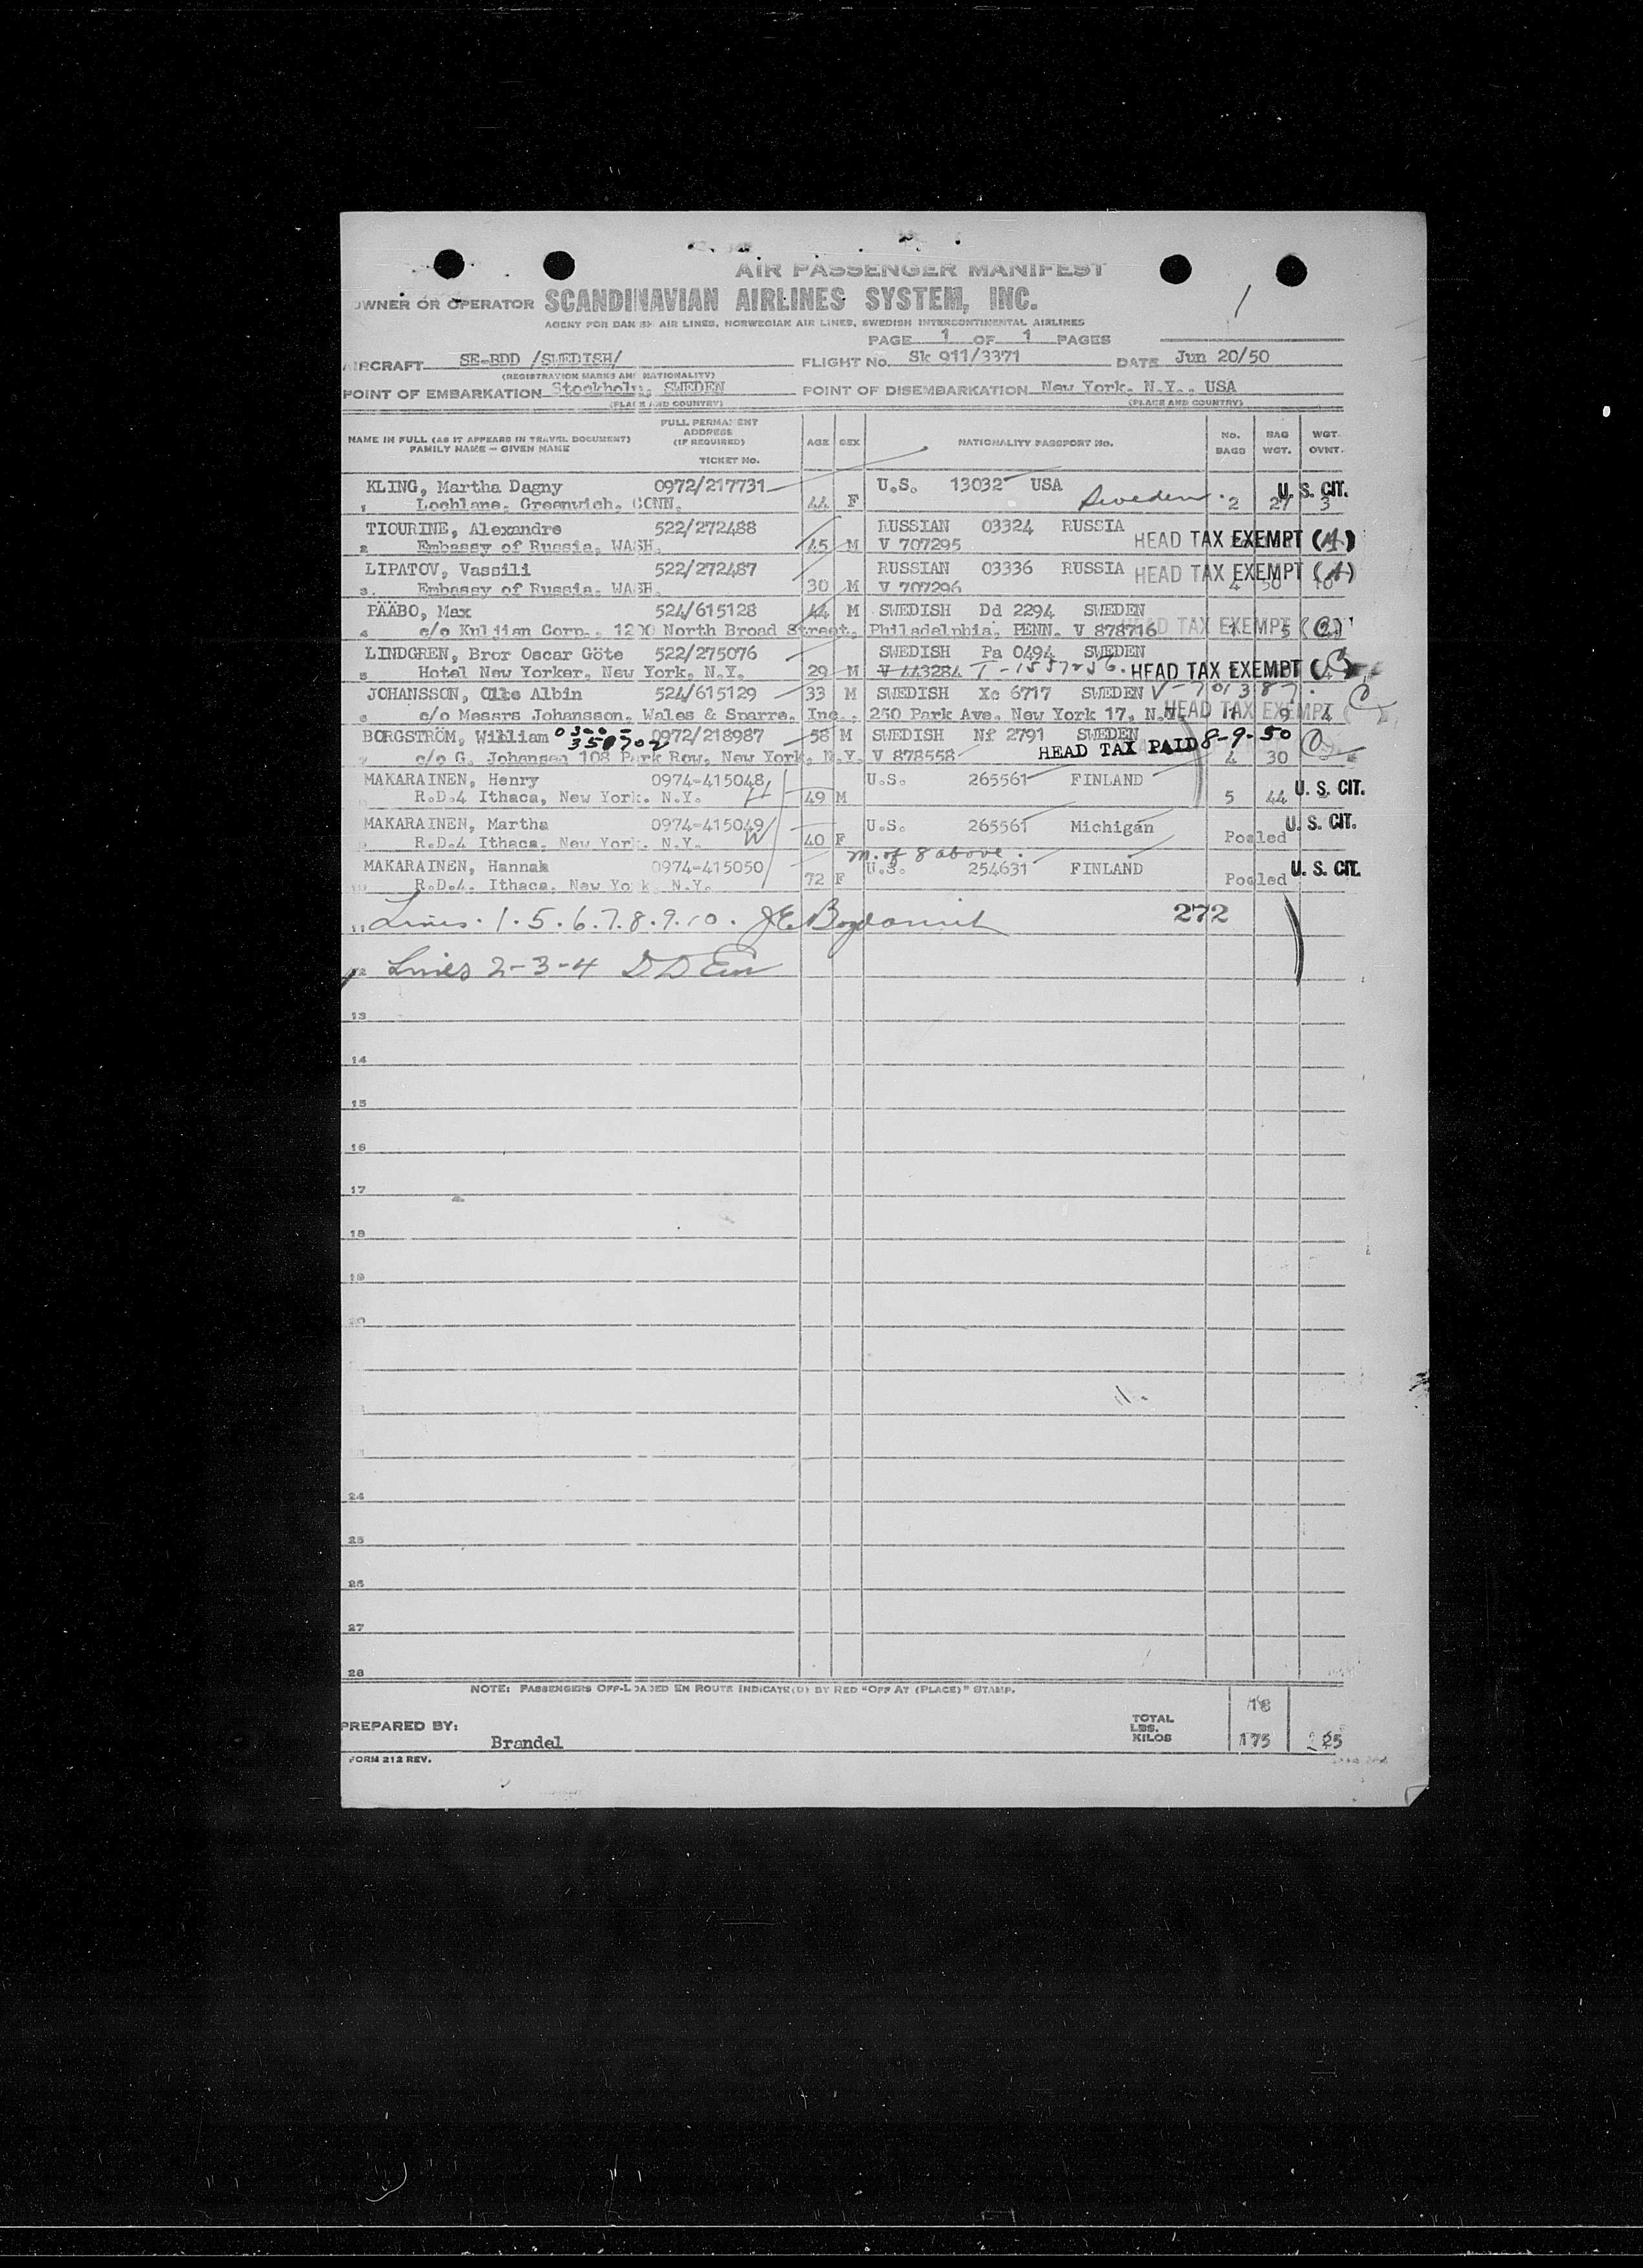 AIR PASSENGER MANIFEST
OWNER OR OPERATOR SCANDINAVIAN AIRLINES SYSTEM, INC.
AGENT FOR DANISH AIR LINES, NORWEGIAN AIR LINES, SWEDISH INTERCONTINENTAL AIRLINES
PAGE 1 OF 1 PAGES
AIRCRAFT SE-BDD /SWEDISH/ FLIGHT No. Sk 911/3371 DATE Jun 20/50
(REGISTRATION MARKS AND NATIONALITY)
POINT OF EMBARKATION Stockholm, SWEDEN POINT OF DISEMBARKATION New York, N.Y., USA
(PLACE AND COUNTRY) (PLACE AND COUNTRY)
NAME IN FULL (AS IT APPEARS IN TRAVEL DOCUMENT) FAMILY NAME – GIVEN NAME FULL PERMANENT ADDRESS (IF REQUIRED) TICKET No. AGE SEX NATIONALITY PASSPORT No. No. BAGS BAG WGT. WGT. OVNT.
KLING, Martha Dagny 0972/217731 U.S. 13032 USA U. S. CIT.
1 Lochlane, Greenwich, CONN. 44 F Sweden. 2 27 3
TIOURINE, Alexandre 522/272488 RUSSIAN 03324 RUSSIA
2 Embassy of Russia, WASH. 45 M V 707295 HEAD TAX EXEMPT (A)
LIPATOV, Vassili 522/272487 RUSSIAN 03336 RUSSIA HEAD TAX EXEMPT (A)
3. Embassy of Russia, WASH. 30 M V 707296 4 50 10
PÄÄBO, Max 524/615128 44 M SWEDISH Dd 2294 SWEDEN
4 c/o Kuljian Corp., 1200 North Broad Street, Philadelphia, PENN. V 878716 HEAD TAX EXEMPT 1 5
LINDGREN, Bror Oscar Göte 522/275076 SWEDISH Pa 0494 SWEDEN
5 Hotel New Yorker, New York, N.Y. 29 M V 443284 T-1557256. HEAD TAX EXEMPT
JOHANSSON, Olle Albin 524/615129 33 M SWEDISH Xc 6717 SWEDEN V-701387.
6 c/o Messrs Johansson, Wales & Sparre, Inc., 250 Park Ave, New York 17, N.Y. HEAD TAX EXEMPT 1 9 4
BORGSTRÖM, William 0300- 350702 0972/218987 58 M SWEDISH Nf 2791 SWEDEN
7 c/o G. Johansen 108 Park Row, New York, N.Y. V 878558 HEAD TAX PAID 8-9-50 4 30
MAKARAINEN, Henry 0974-415048 U.S. 265561 FINLAND
R.D.4 Ithaca, New York. N.Y. 49 M 5 44 U. S. CIT.
MAKARAINEN, Martha 0974-415049 U.S. 265561 Michigan U. S. CIT.
R.D.4 Ithaca, New York. N.Y. W 40 F Pooled
m. of 8 above.
MAKARAINEN, Hannah 0974-415050 U.S. 254631 FINLAND U. S. CIT.
10 R.D.4. Ithaca, New York N.Y. 72 F Pooled
11 Lines. 1.5.6.7.8.9.10. 272
12 Lines 2-3-4
13
14
15
16
17
18
19
20
24
25
26
27
28
NOTE: PASSENGERS OFF-LOADED EN ROUTE INDICATE(D) BY RED "OFF AT (PLACE)" STAMP.
18
PREPARED BY: Brandel TOTAL LBS. KILOS 175 25
FORM 212 REV.